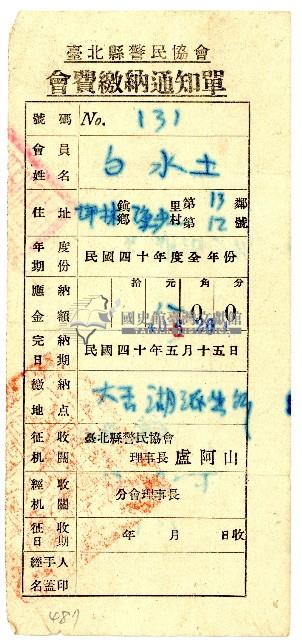 臺北縣警民協會
會費繳納通知單
號碼 No. 131
會員姓名 白水土
住址 坪林 鎮鄉 里村 第13鄰 第12號
年度期份 民國四十年度全年份
應納金額 拾元角分 00
國史館臺灣文獻館
完納日期 民國四十年五月十五日
繳納地点
征收机關 臺北縣警民協會
理事長 盧阿山
經收机關 分會理事長
征收日期 年 月 日收
經手人名蓋印
487